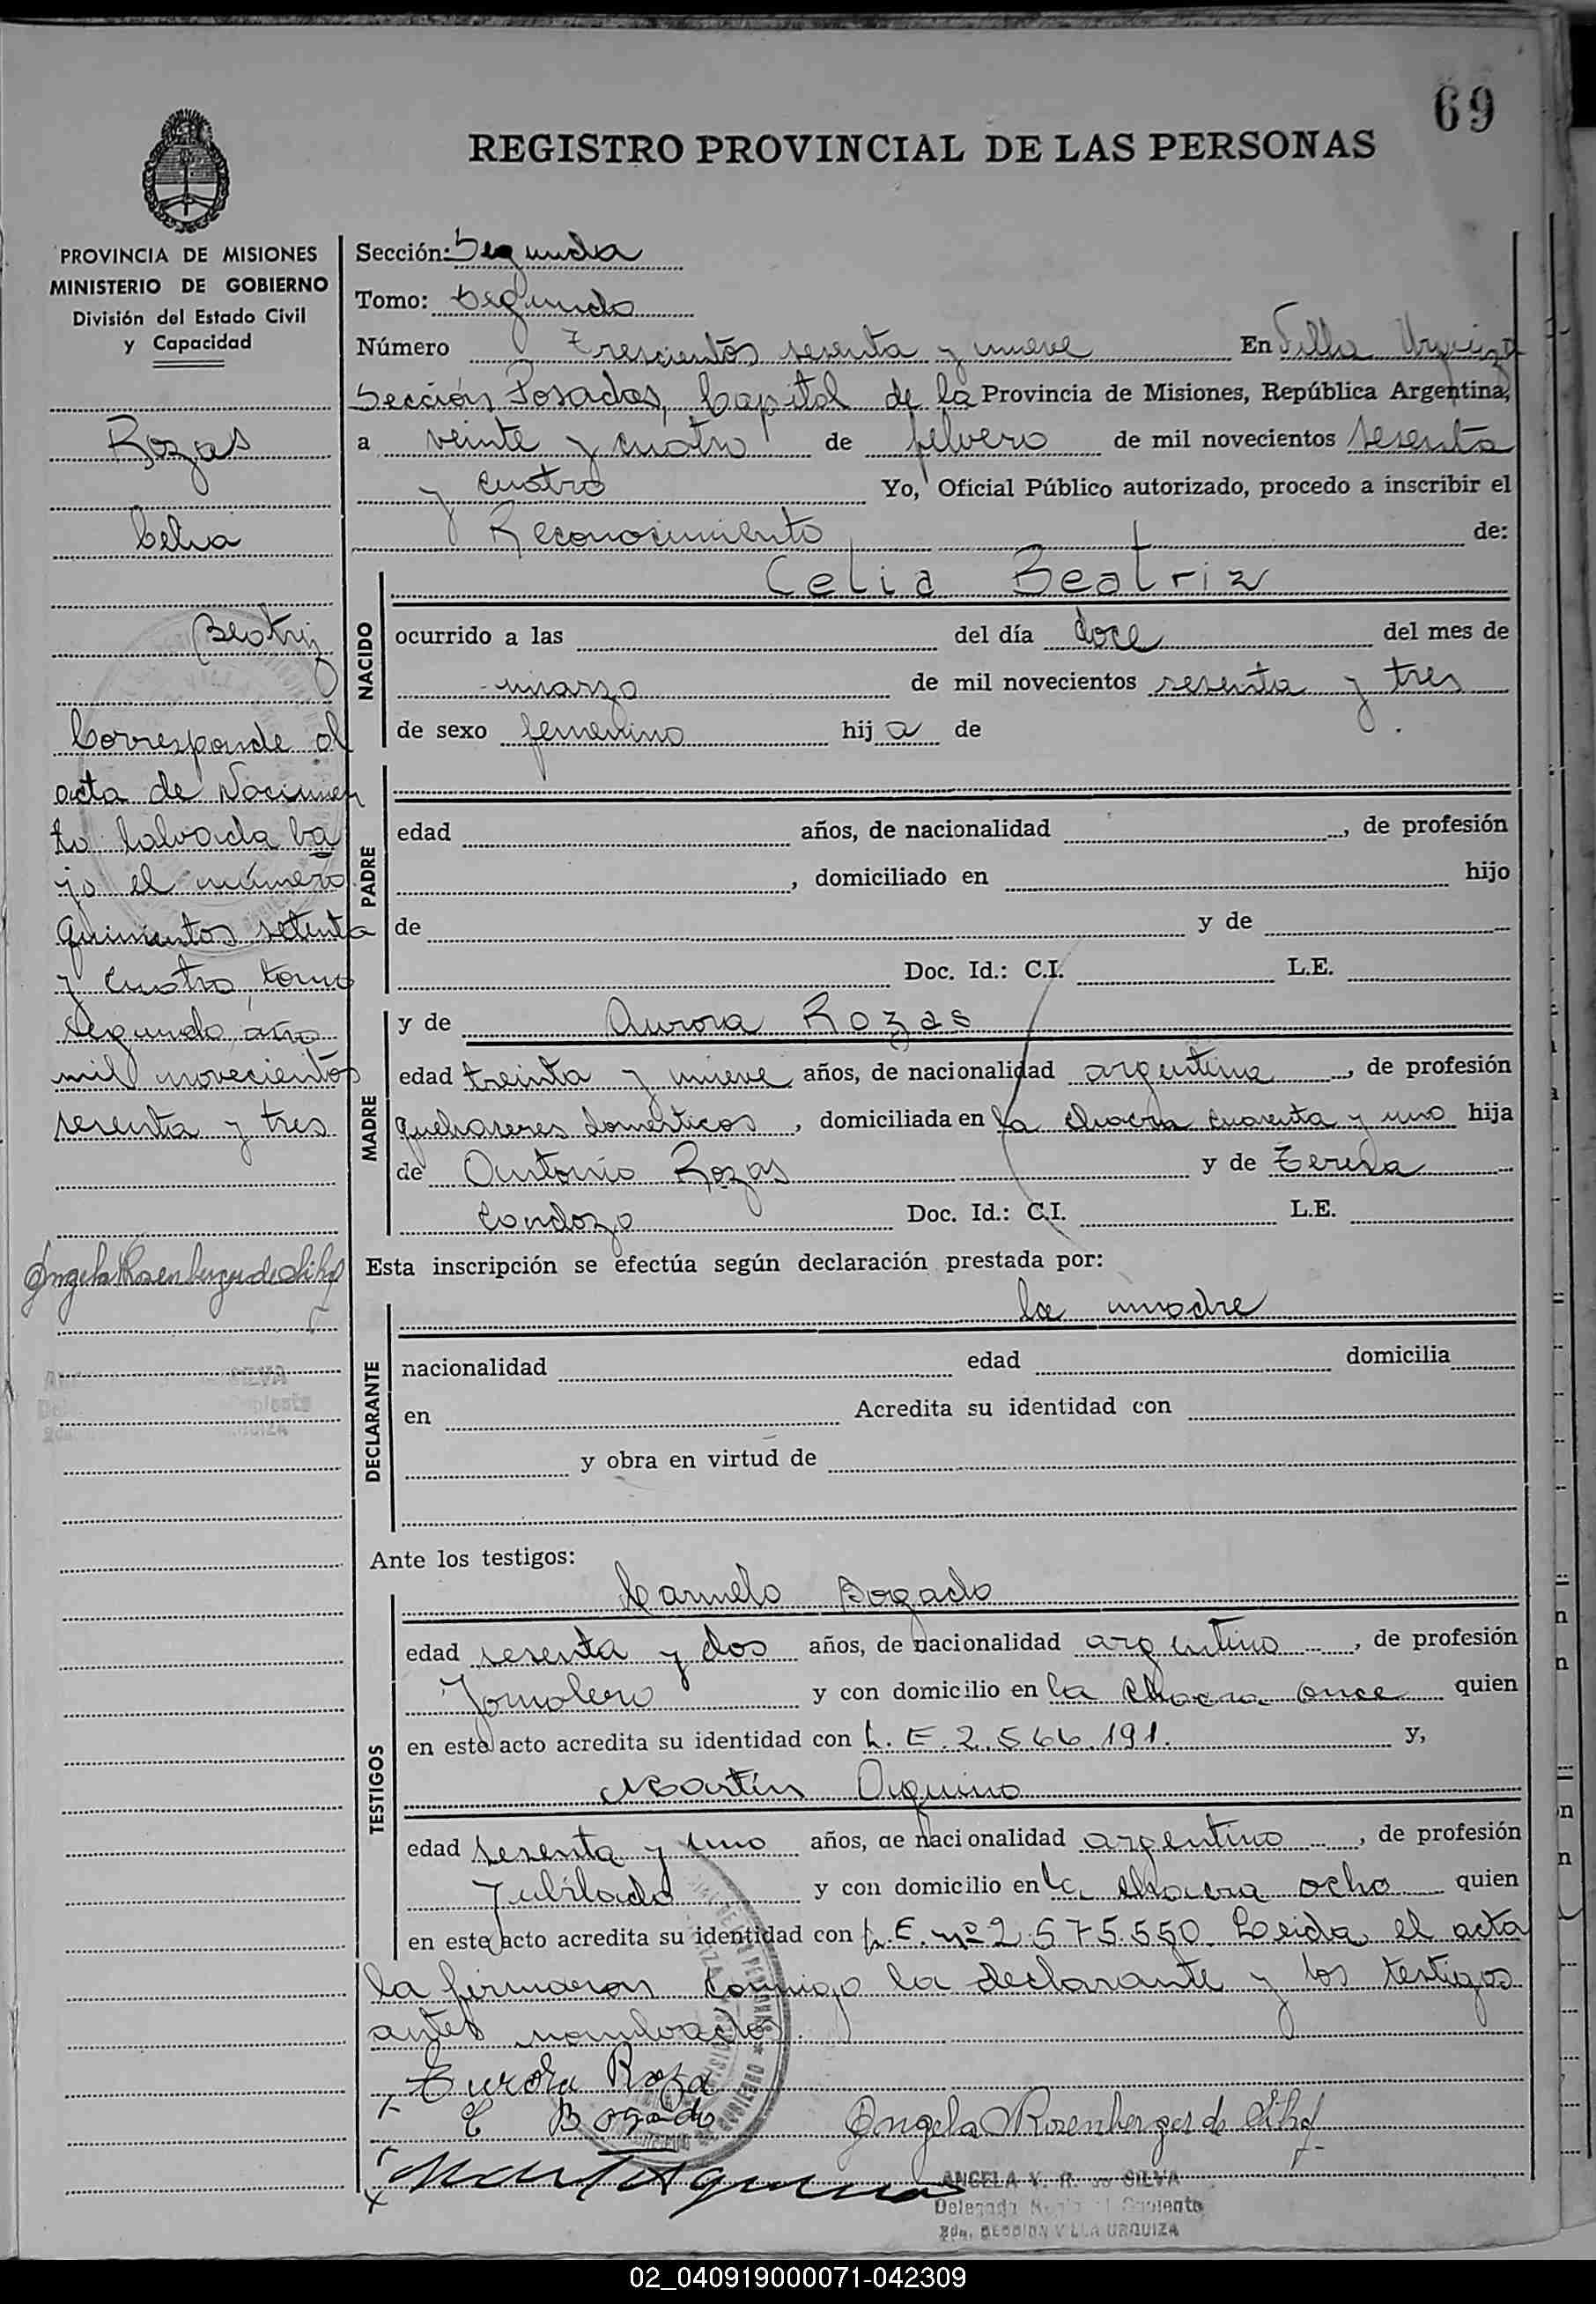 69
REGISTRO PROVINCIAL DE LAS PERSONAS
PROVINCIA DE MISIONES
MINISTERIO DE GOBIERNO
División del Estado Civil
y Capacidad
Rozas
Celia
Beatriz
Corresponde al
acta de Nacimien
to labrada ba
jo el número
quinientos setenta
y cuatro, tomo
segundo, año
mil novecientos
sesenta y tres
Angela Rosenberger de Silva
SILVA
Sección: Segunda
Tomo: Segundo
Número Trescientos sesenta y nueve En Villa Urquiza
Sección Posadas, Capital de la Provincia de Misiones, República Argentina,
a veinte y cuatro de febrero de mil novecientos sesenta
y cuatro Yo, Oficial Público autorizado, procedo a inscribir el
Reconocimiento de:
NACIDO
Celia Beatriz
ocurrido a las del día doce del mes de
marzo de mil novecientos sesenta y tres
de sexo femenino hija de
PADRE
edad años, de nacionalidad , de profesión
, domiciliado en hijo
de y de
Doc. Id.: C.I. L.E.
MADRE
y de Aurora Rozas
edad treinta y nueve años, de nacionalidad argentina, de profesión
quehaceres domésticos, domiciliada en la chacra cuarenta y uno hija
de Antonio Rozas y de Teresa
Cardozo Doc. Id.: C.I. L.E.
Esta inscripción se efectúa según declaración prestada por:
DECLARANTE
la madre
nacionalidad edad domicilia
en Acredita su identidad con
y obra en virtud de
Ante los testigos:
TESTIGOS
Carmelo Bogado
edad sesenta y dos años, de nacionalidad argentino, de profesión
Jornalero y con domicilio en la chacra once quien
en este acto acredita su identidad con L.E. 2.566.191. y,
Martín Aquino
edad sesenta y uno años, de nacionalidad argentino, de profesión
Jubilado y con domicilio en la chacra ocho quien
en este acto acredita su identidad con L.E. nº 2.575.550. Leida el acta
la firmaron conmigo la declarante y los testigos
antes nombrados.
Aurora Roza
C Bogado
Angela Rosenberger de Silva
ANGELA R. de SILVA
Delegada Suplente
SECCION VILLA URQUIZA
02_040919000071-042309